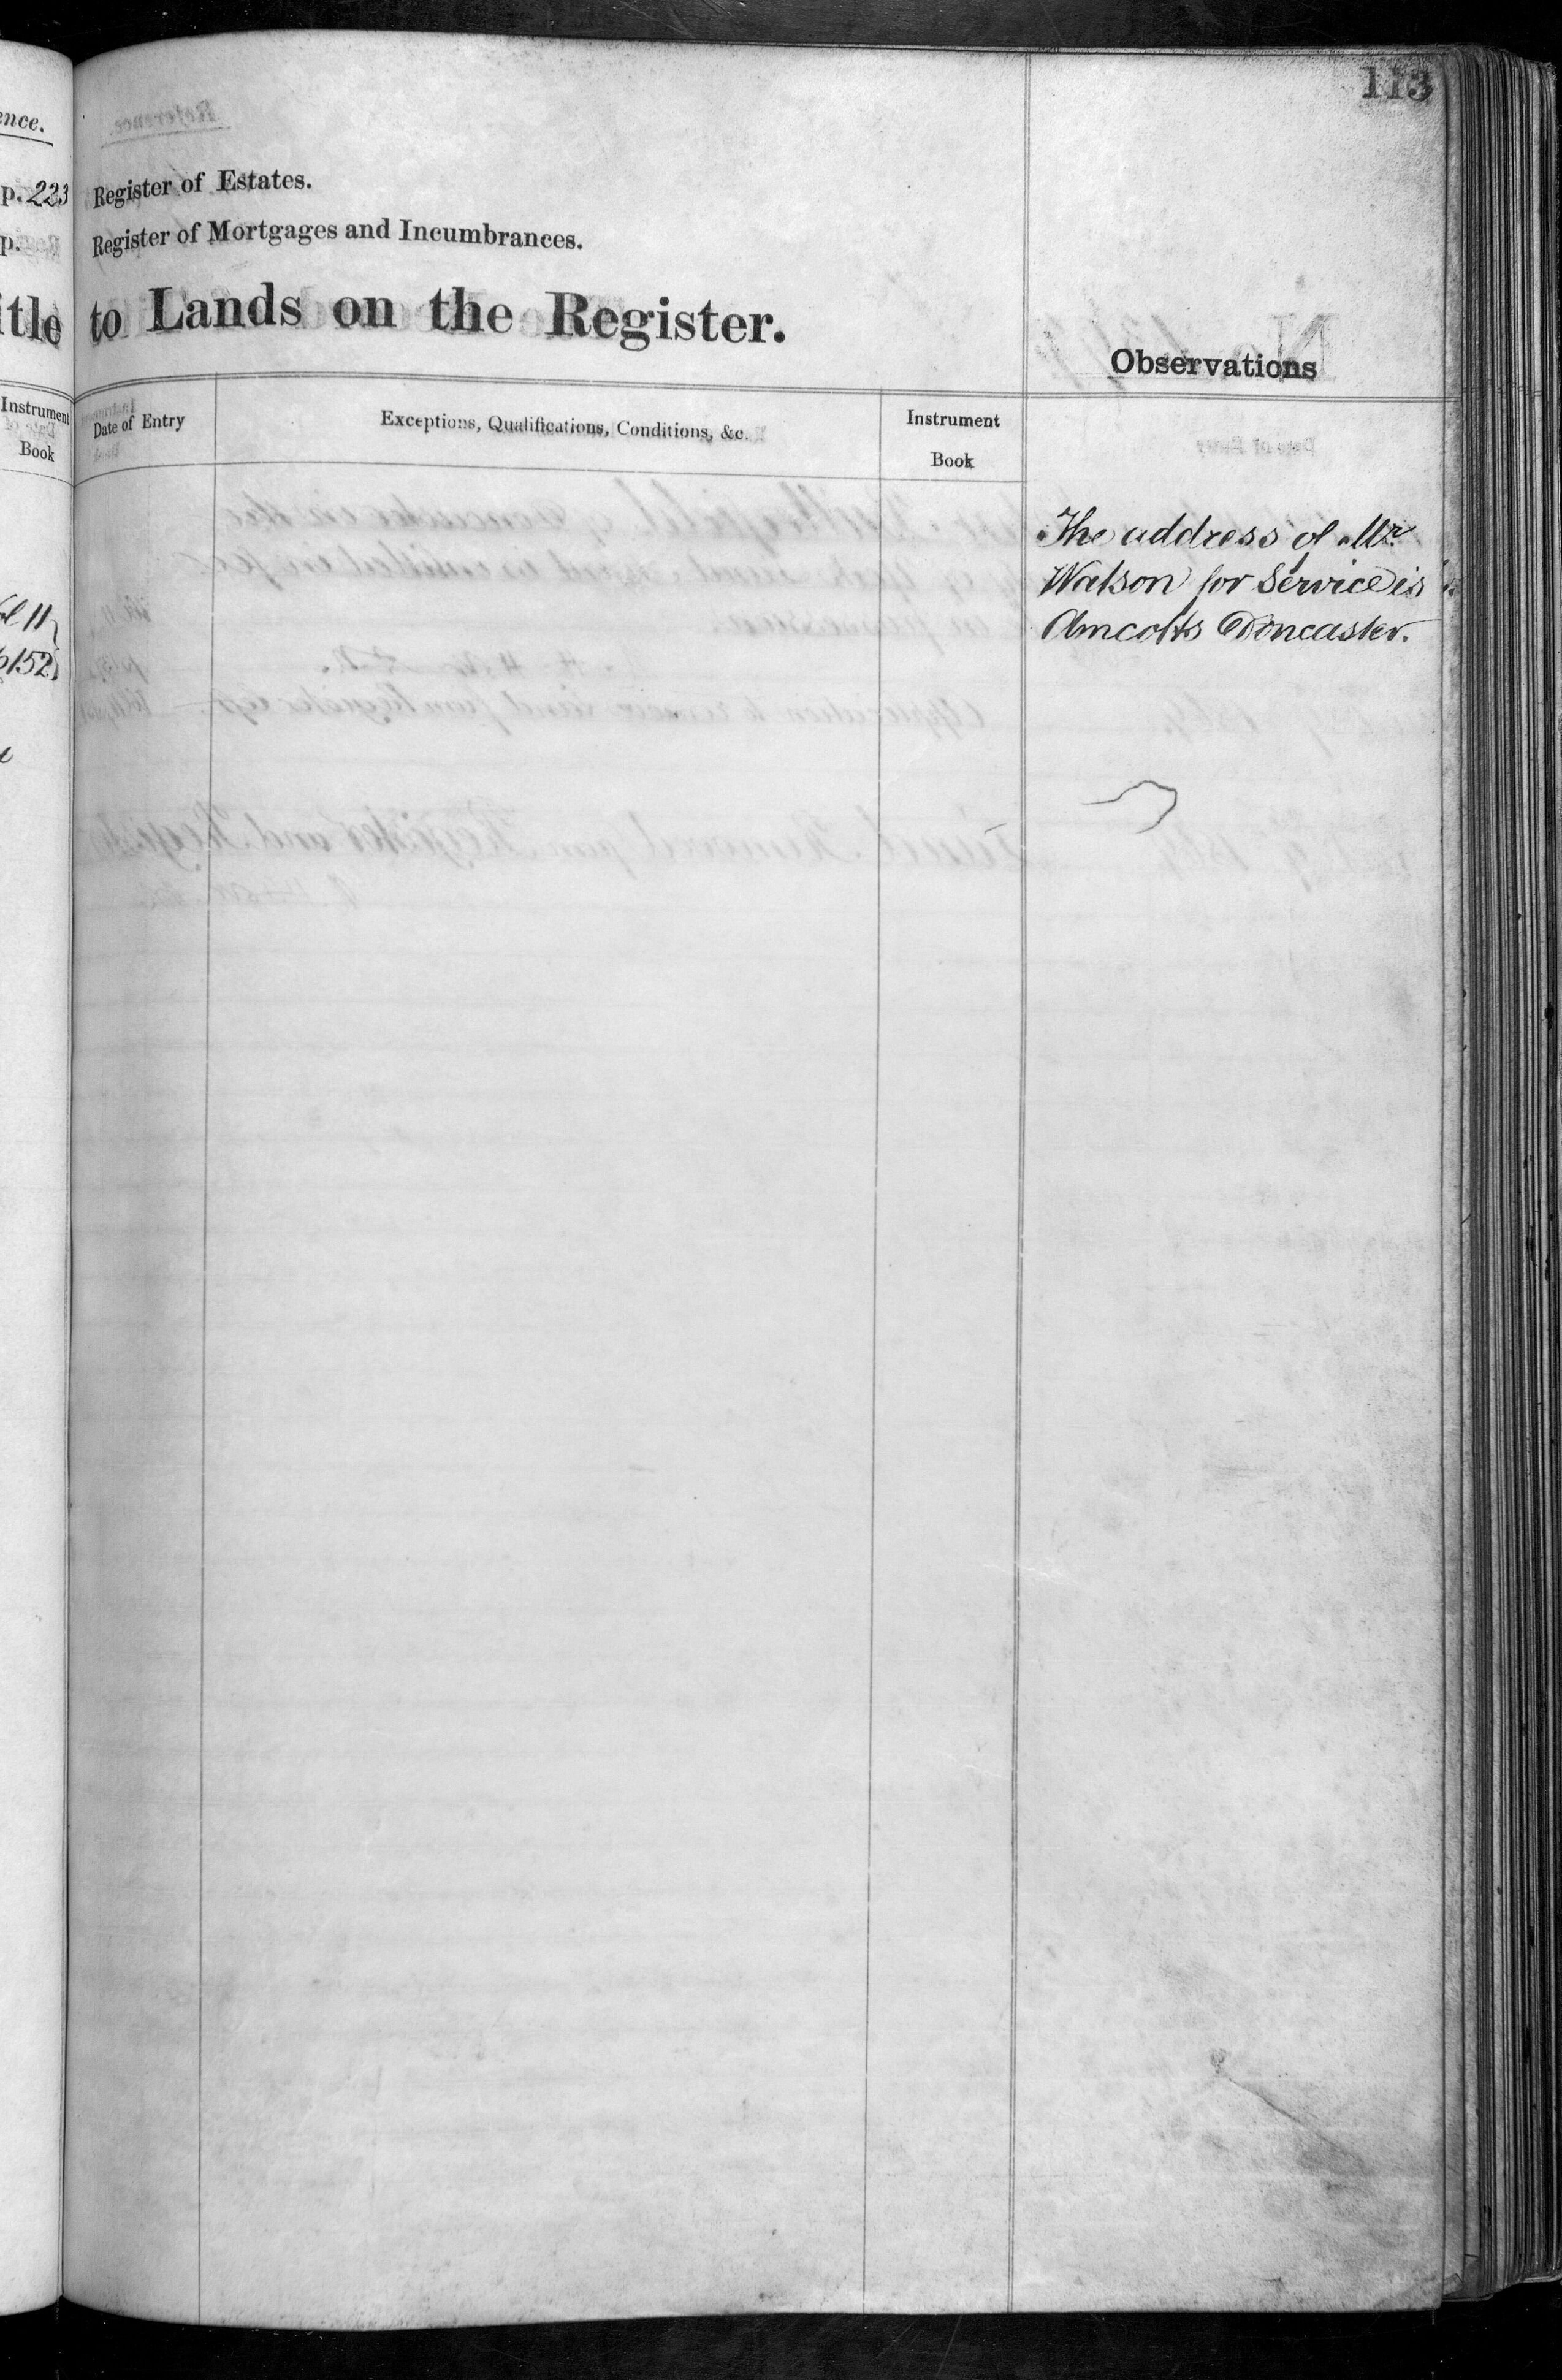 113
ence.
p. 223
p.
Register of Estates.
Register of Mortgages and Incumbrances.
itle to Lands on the Register.
Observations
Instrument
Book
Date of Entry
Exceptions, Qualifications, Conditions, &c.
Instrument
Book
The address of Mr
Watson for Service is
Amcotts Doncaster.
11
p152